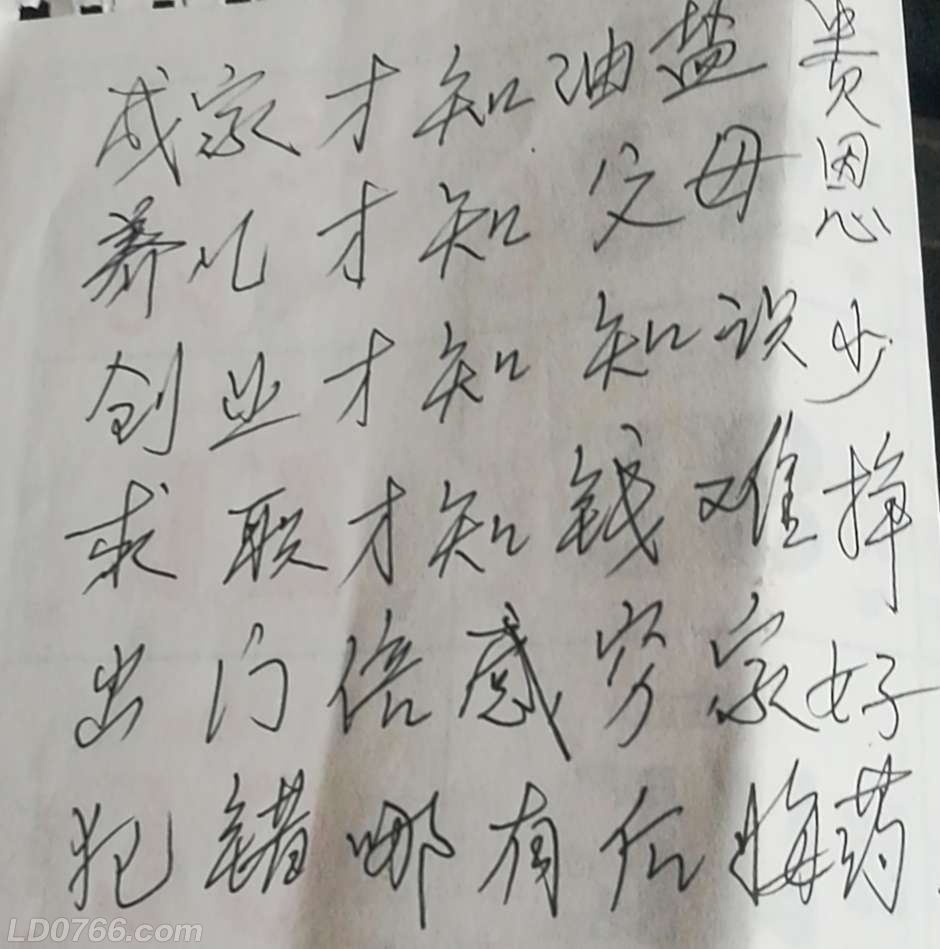 成家才知油盐贵
养儿才知父母恩
创业才知知识少
求职才知钱难挣
出门倍感穷家好
犯错哪有后悔药
LD0766.com